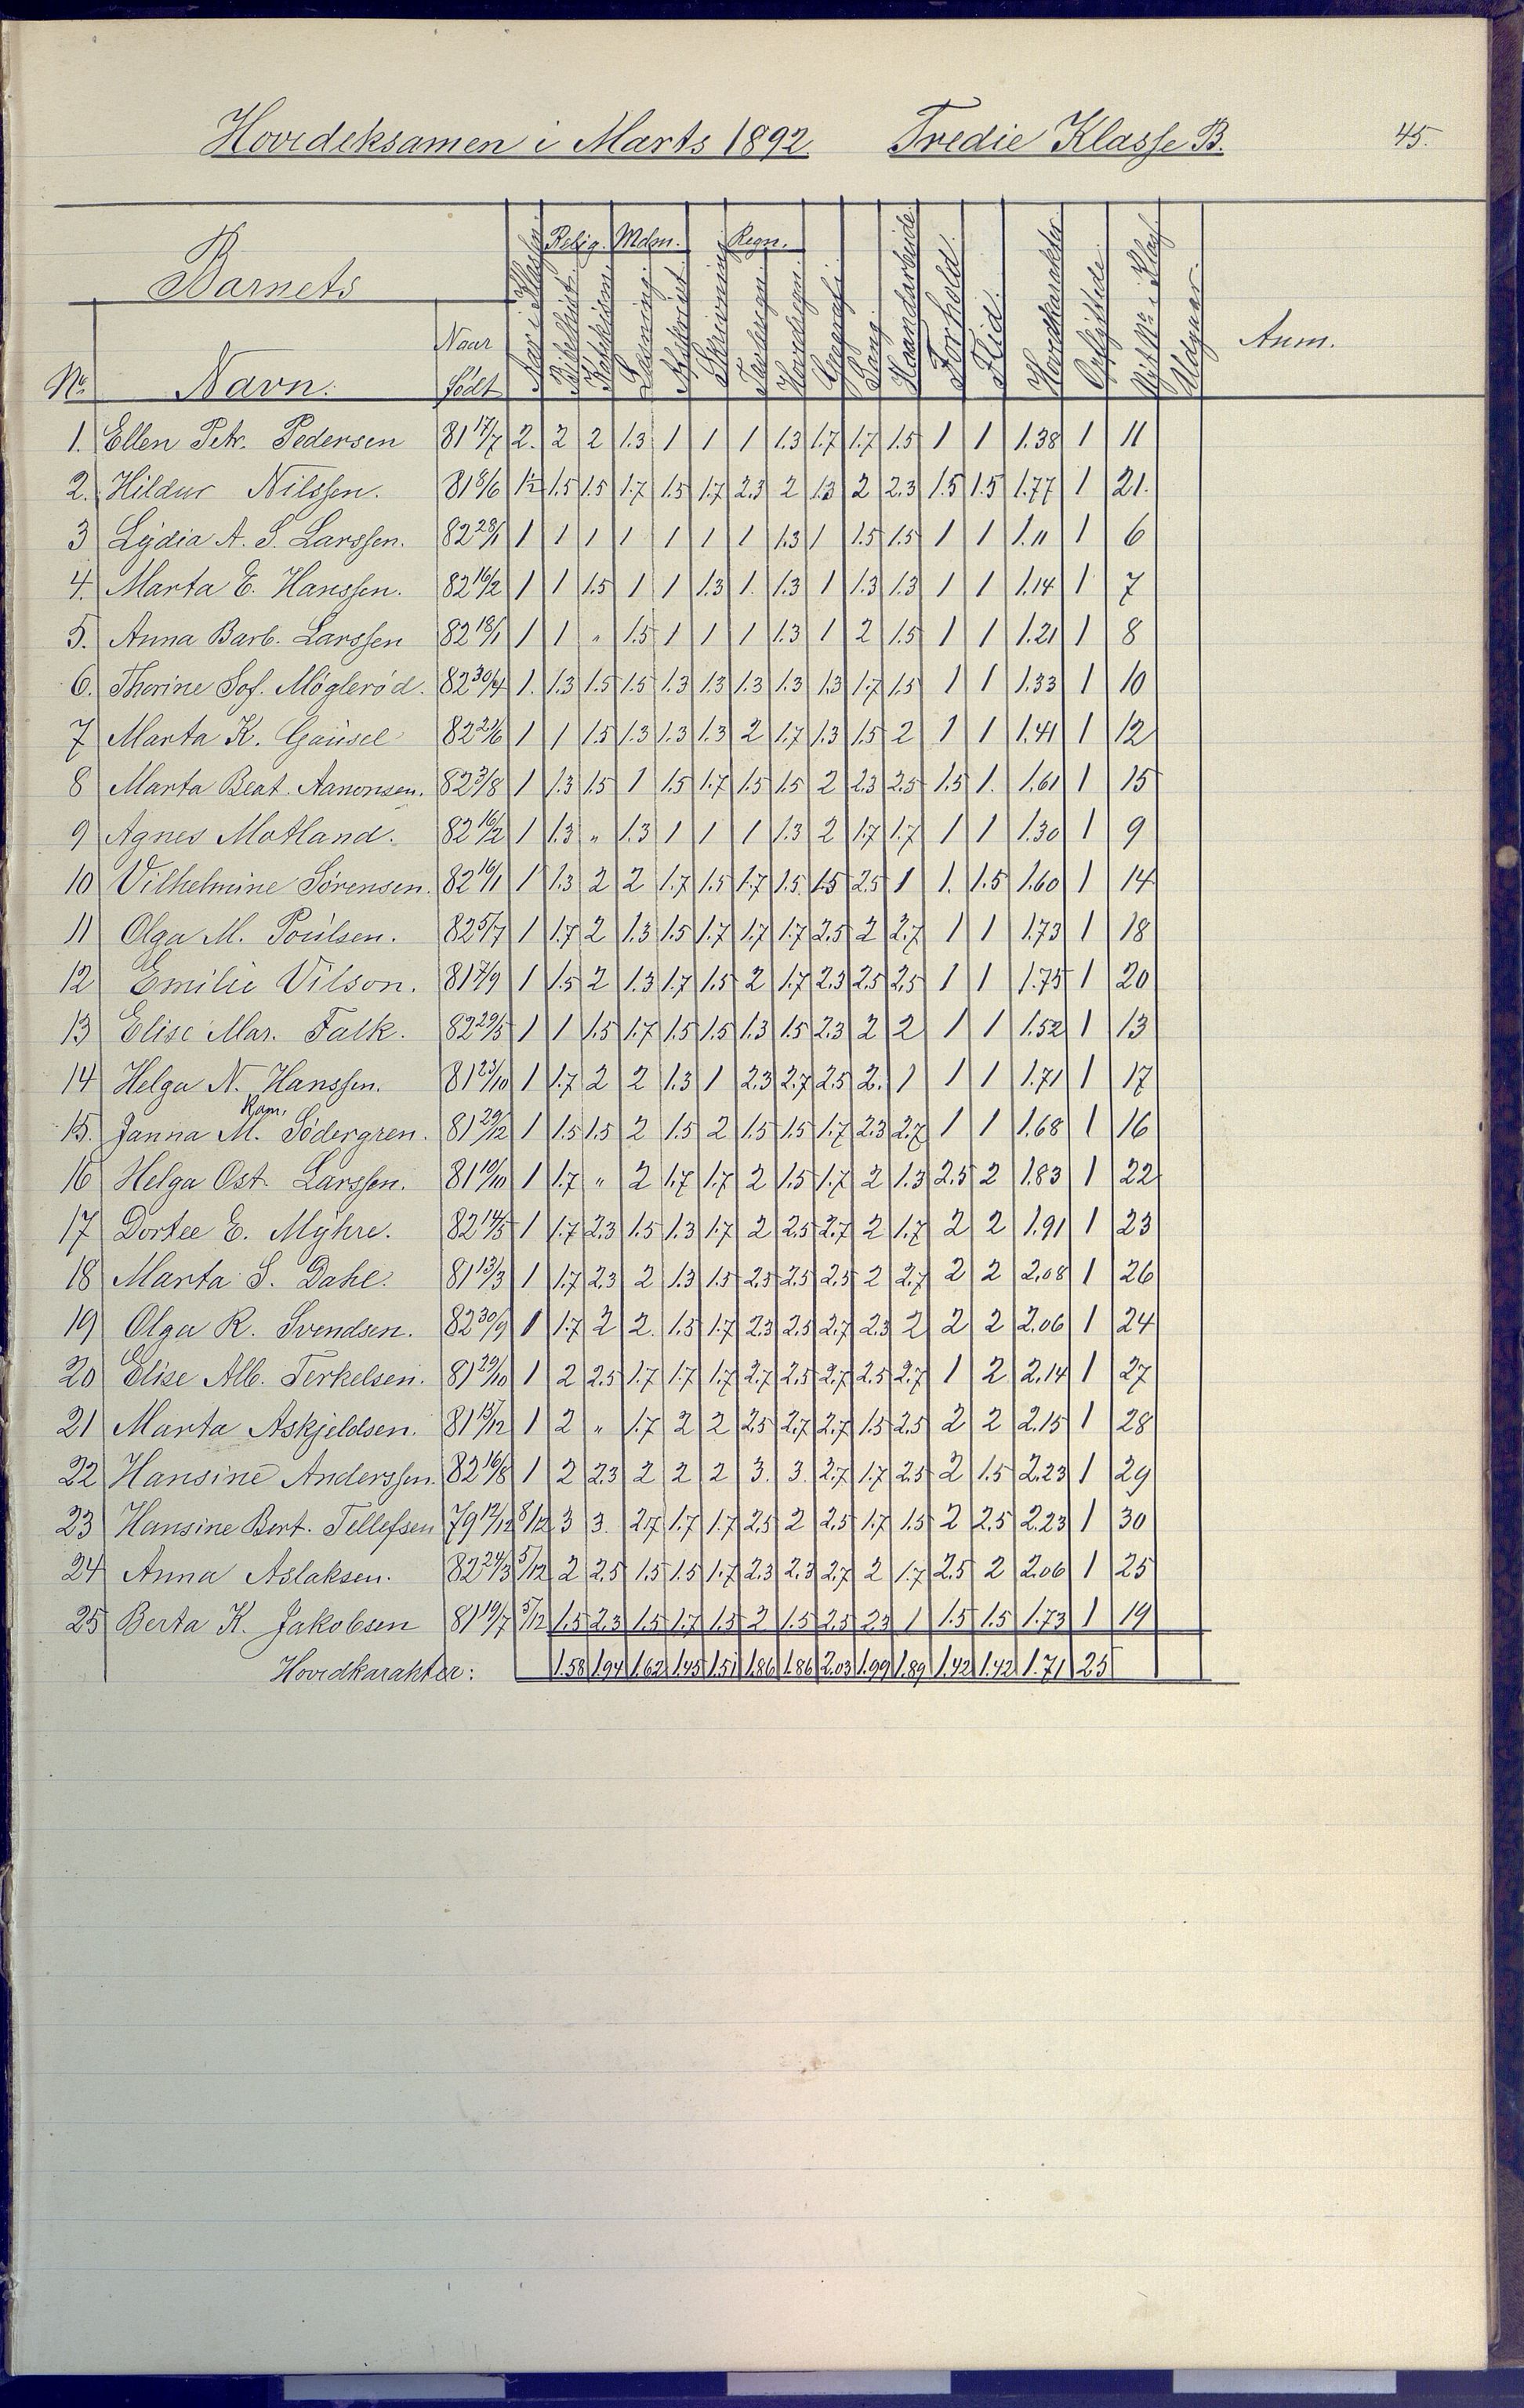 Hovedeksamen i Marts 1892. Tredie Klasse B. 45.
Barnets Aar i Klassen Relig. Mdm. Regn.
Nr. Navn. Naar født Bibelhist. Katekism. Læsning Skrivning Tavleregn. Hovedregn. Geografi. Sang. Haandarbeide. Forhold. Flid. Hovedkarakter. Opflyttede. Nyt Nr. i Klas. Udgaar. Anm.
1. Ellen Petr. Pedersen 81 17/7 2. 2 2 1.3 1 1 1 1.3 1.7 1.7 1.5 1 1 1.38 1 11
2. Hildur Nilssen. 81 8/6 1½ 1.5 1.5 1.7 1.5 1.7 2.3 2 1.3 2 2.3 1.5 1.5 1.77 1 21.
3 Lydia A. S. Larssen. 82 28/1 1 1 1 1 1 1 1 1.3 1 1.5 1.5 1 1 1.11 1 6
4. Marta E. Hanssen. 82 16/2 1 1 1.5 1 1 1.3 1. 1.3 1 1.3 1.3 1 1 1.14 1 7
5. Anna Barb. Larssen 82 18/1 1 1 " 1.5 1 1 1 1.3 1 2 1.5 1 1 1.21 1 8
6. Thorine Sof. Møglerød. 82 30/4 1. 1.3 1.5 1.5 1.3 1.3 1.3 1.3 1.3 1.7 1.5 1 1 1.33 1 10
7 Marta K. Gausel 82 21/6 1 1 1.5 1.3 1.3 1.3 2 1.7 1.3 1.5 2 1 1 1.41 1 12
8 Marta Beat. Aanonsen. 82 3/8 1 1.3 1.5 1 1.5 1.7 1.5 1.5 2 2.3 2.5 1.5 1. 1.61 1 15
9 Agnes Motland. 82 16/2 1 1.3 " 1.3 1 1 1 1.3 2 1.7 1.7 1 1 1.30 1 9
10 Vilhelmine Sörensen. 82 16/1 1 1.3 2 2 1.7 1.5 1.7 1.5 1.5 2.5 1 1. 1.5 1.60 1 14
11 Olga M. Poulsen. 82 5/7 1 1.7 2 1.3 1.5 1.7 1.7 1.7 2.5 2 2.7 1 1 1.73 1 18
12 Emilie Vilson. 81 7/9 1 1.5 2 1.3 1.7 1.5 2 1.7 2.3 2.5 2.5 1 1 1.75 1 20
13 Elise Mar. Falk. 82 29/5 1 1 1.5 1.7 1.5 1.5 1.3 1.5 2.3 2 2 1 1 1.52 1 13
14 Helga N. Hanssen. 81 23/10 1 1.7 2 2 1.3 1 2.3 2.7 2.5 2. 1 1 1 1.71 1 17
Ram.
15. Janna M. Södergren. 81 29/12 1 1.5 1.5 2 1.5 2 1.5 1.5 1.7 2.3 2.7 1 1 1.68 1 16
16 Helga Ost. Larssen. 81 10/10 1 1.7 " 2 1.7 1.7 2 1.5 1.7 2 1.3 2.5 2 1.83 1 22
17 Dortee E. Myhre. 82 14/5 1 1.7 2.3 1.5 1.3 1.7 2 2.5 2.7 2 1.7 2 2 1.91 1 23
18 Marta S. Dahl. 81 13/3 1 1.7 2.3 2 1.3 1.5 2.5 2.5 2.5 2 2.7 2 2 2.08 1 26
19 Olga R. Svendsen. 82 30/9 1 1.7 2 2. 1.5 1.7 2.3 2.5 2.7 2.3 2 2 2 2.06 1 24
20 Elise Alb. Terkelsen. 81 29/10 1 2 2.5 1.7 1.7 1.7 2.7 2.5 2.7 2.5 2.7 1 2 2.14 1 27
21 Marta Askjeldsen. 81 15/12 1 2 " 1.7 2 2 2.5 2.7 2.7 1.5 2.5 2 2 2.15 1 28
22 Hansine Anderssen. 82 16/8 1 2 2.3 2 2 2 3. 3. 2.7 1.7 2.5 2 1.5 2.23 1 29
23 Hansine Bert. Tellefsen 79 12/12 8/12 3 3. 2.7 1.7 1.7 2.5 2 2.5 1.7 1.5 2 2.5 2.23 1 30
24 Anna Aslaksen. 82 24/3 5/12 2 2.5 1.5 1.5 1.7 2.3 2.3 2.7 2 1.7 2.5 2 2.06 1 25
25 Berta K. Jakobsen 81 19/7 5/12 1.5 2.3 1.5 1.7 1.5 2 1.5 2.5 2.3 1 1.5 1.5 1.73 1 19
Hovedkarakter: 1.58 1.94 1.62 1.45 1.51 1.86 1.86 2.03 1.99 1.89 1.42 1.42 1.71 25